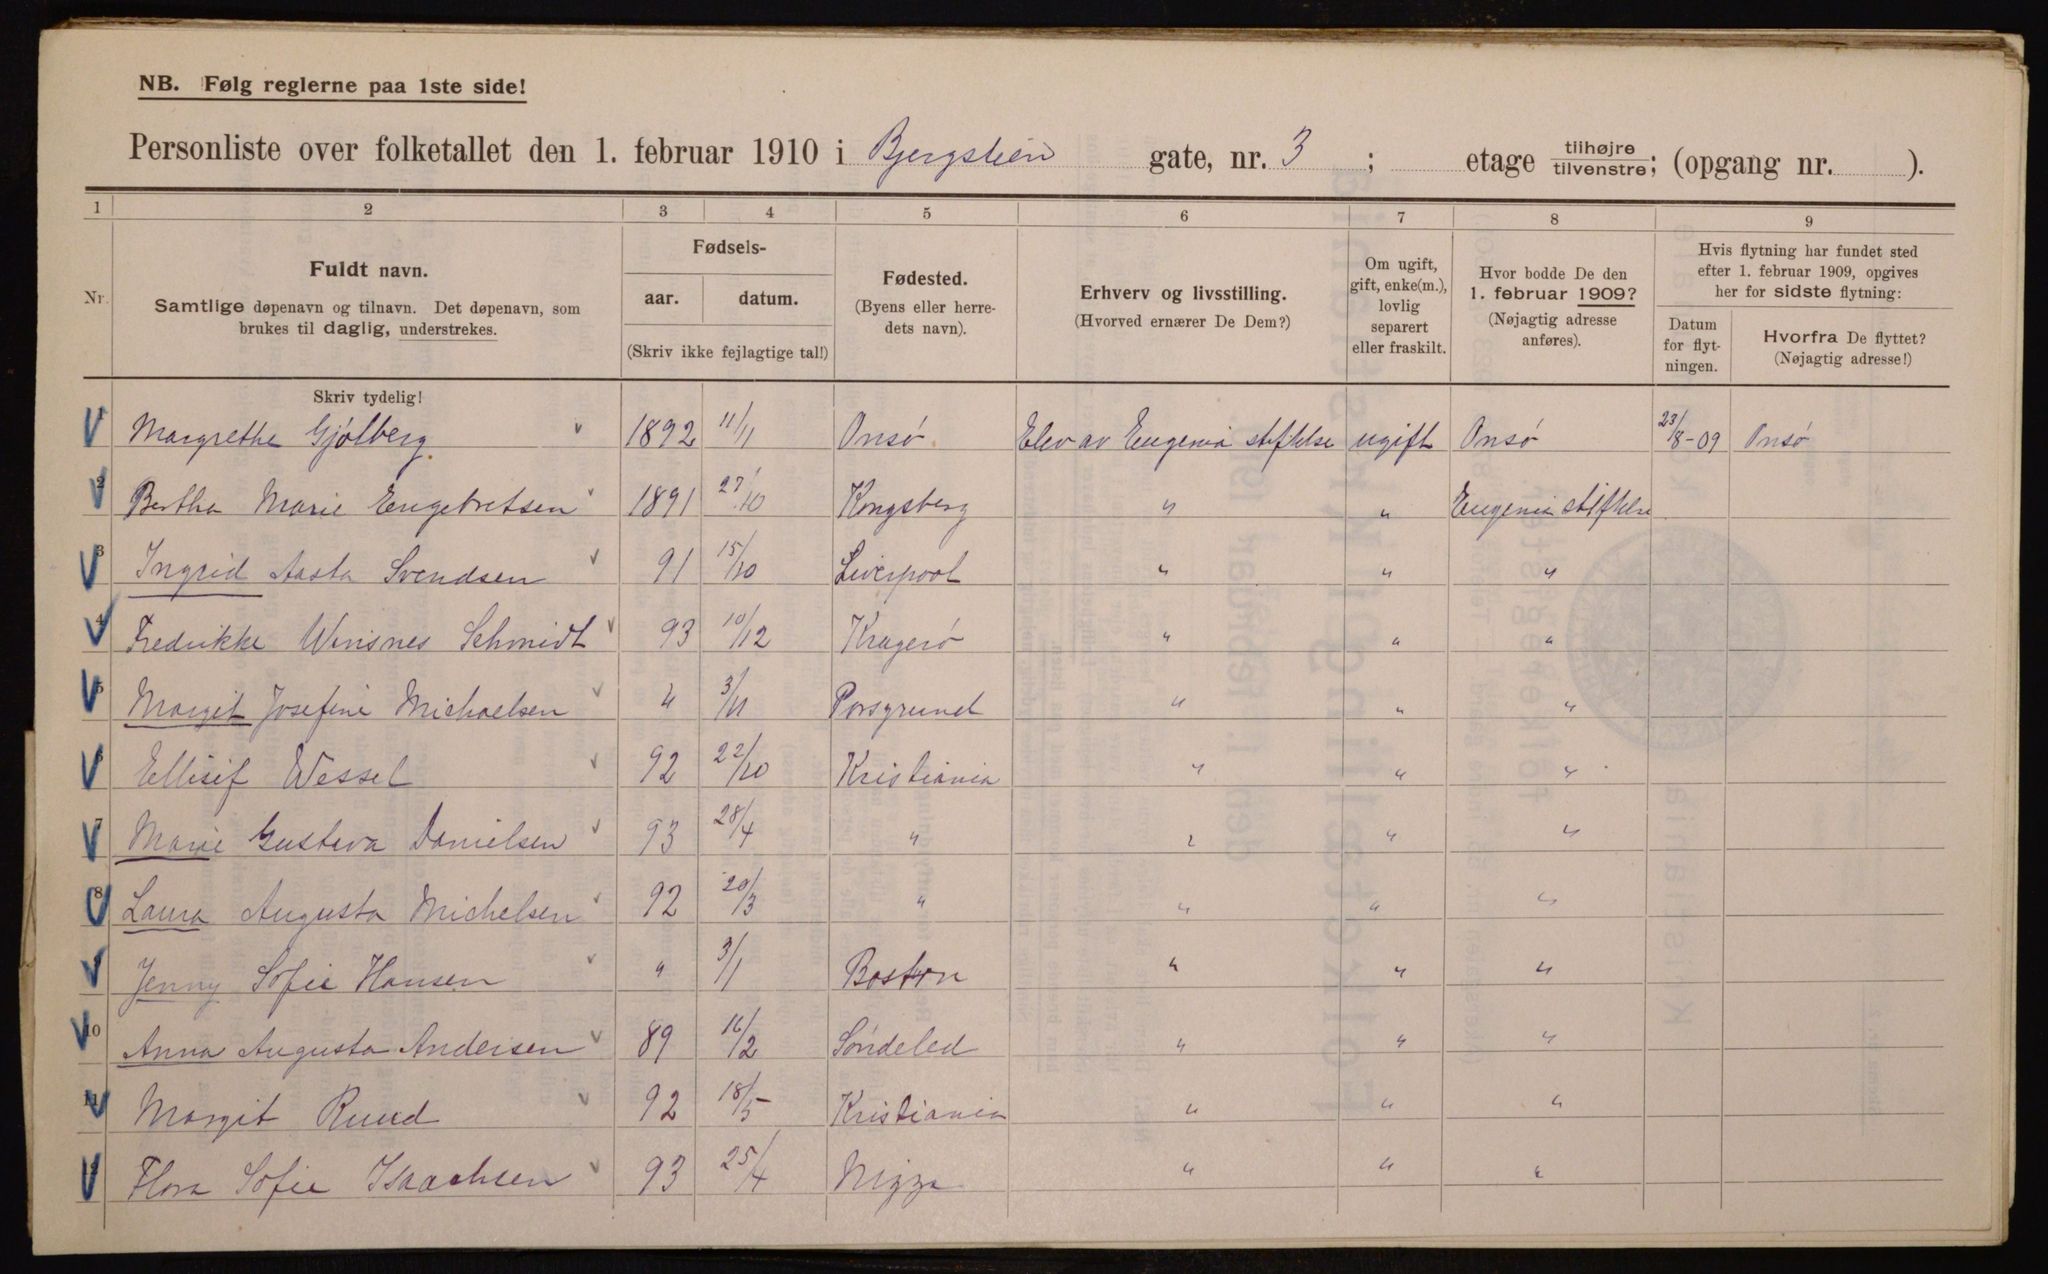 NB. Følg reglerne paa 1ste side!
Personliste over folketallet den 1. februar 1910 i Bjergstien gate, nr. 3 ; etage tilhøjre tilvenstre; (opgang nr. ).
1 2 3 4 5 6 7 8 9
Nr.
Fuldt navn.
Samtlige døpenavn og tilnavn. Det døpenavn, som
brukes til daglig, understrekes.
Skriv tydelig!
Fødsels-
aar. datum.
(Skriv ikke fejlagtige tal!)
Fødested.
(Byens eller herre-
dets navn).
Erhverv og livsstilling.
(Hvorved ernærer De Dem?)
Om ugift,
gift, enke(m.),
lovlig
separert
eller fraskilt.
Hvor bodde De den
1. februar 1909?
(Nøjagtig adresse
anføres).
Hvis flytning har fundet sted
efter 1. februar 1909, opgives
her for sidste flytning:
Datum
for flyt-
ningen.
Hvorfra De flyttet?
(Nøjagtig adresse!)
1 Margrethe Gjølberg 1892 11/11 Onsø Elev av Eugenia stiftelse ugift Onsø 23/8-09 Onsø
2 Bertha Marie Engebretsen 1891 27/10 Kongsberg " " Eugenia stiftelse
3 Ingrid Aasta Svendsen 91 15/10 Liverpool " " "
4 Fredrikke Winsnes Schmidt 93 10/12 Kragerø " " "
5 Margit Josefine Michaelsen " 3/11 Porsgrund " " "
6 Ellisif Wessel 92 22/10 Kristiania " " "
7 Marie Gustava Danielsen 93 28/4 " " " "
8 Laura Augusta Michelsen 92 20/3 " " " "
9 Jenny Sofie Hansen " 3/1 Boston " " "
10 Anna Augusta Andersen 89 16/2 Søndeled " " "
11 Margit Ruud 92 18/5 Kristiania " " "
Flora Sofie Isaachsen 93 25/4 Nizza " " "